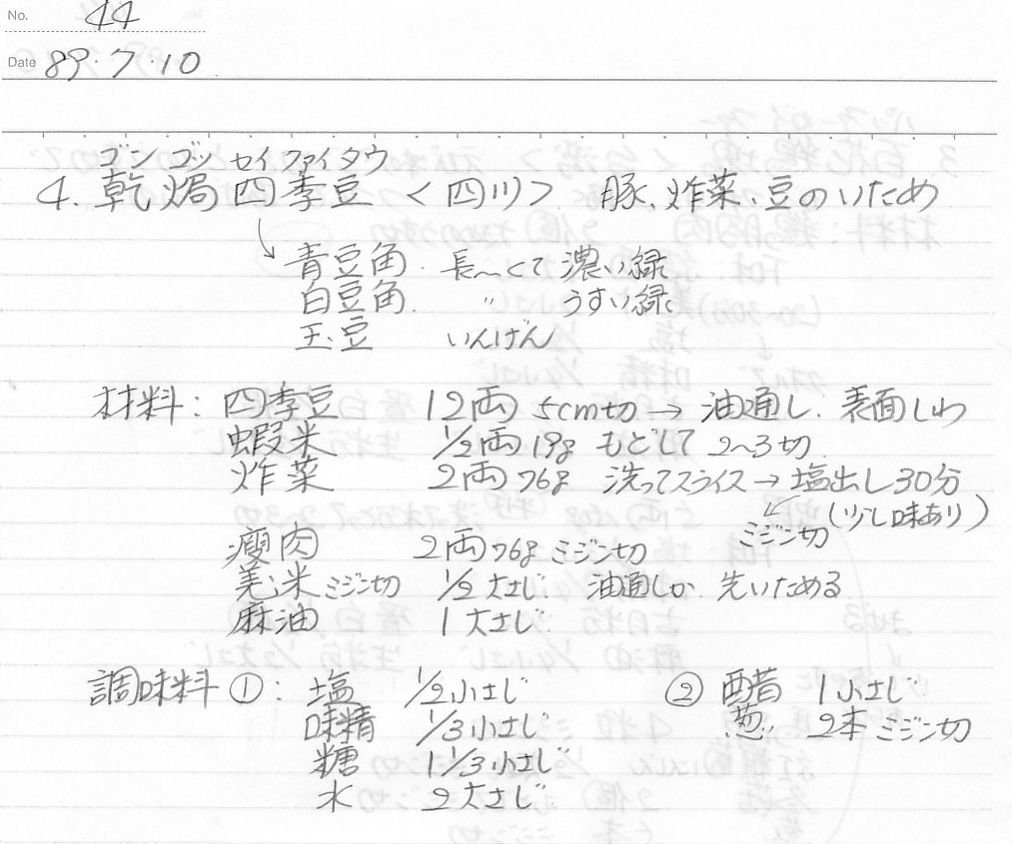 No. 44
Date 89.7.10
ゴン ゴッ セイ ファイ タウ
4. 乾焗四季豆 <四川> 豚、炸菜、豆のいため
青豆角. 長〜くて 濃い緑
白豆角. 〃 うすい緑
玉豆 いんげん
材料: 四季豆 12両 5cm切→ 油通し. 表面しわ
蝦米 1/2両 19g もどして 2〜3切
炸菜 2両 76g 洗ってスライス→塩出し30分
(少し味あり)
ミジン切
瘦肉 2両 76g ミジン切
羗米 ミジン切 1/2 大さじ. 油通しか. 先いためる
麻油 1大さじ
調味料①: 塩 1/2小さじ ② 醋 1小さじ
味精 1/3小さじ 葱 2本 ミジン切
糖 1 1/3小さじ
水 2大さじ